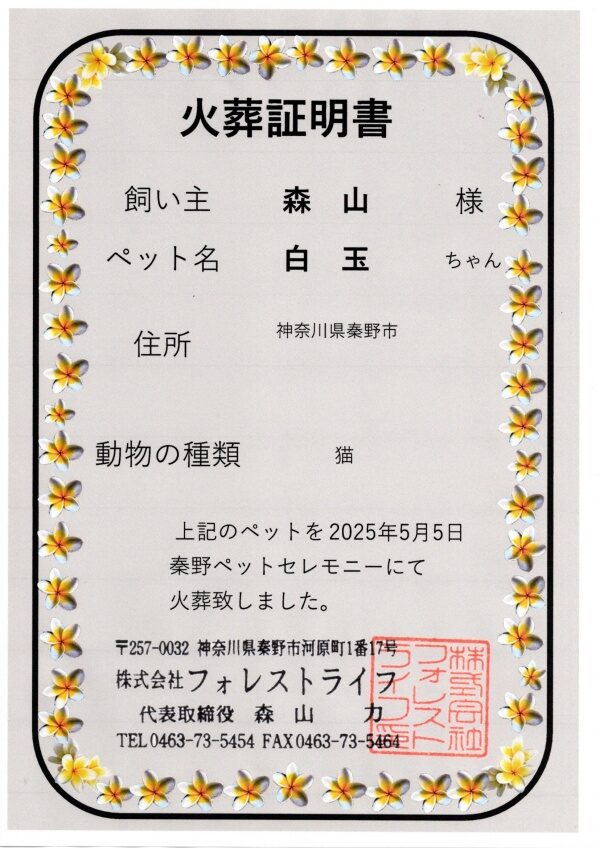 火葬証明書
飼い主 森 山 様
ペット名 白 玉 ちゃん
住所 神奈川県秦野市
動物の種類 猫
上記のペットを2025年5月5日
秦野ペットセレモニーにて
火葬致しました。
〒257-0032 神奈川県秦野市河原町1番17号
株式会社フォレストライフ
代表取締役 森 山 力
TEL0463-73-5454 FAX0463-73-5464
株式会社
フォレスト
ライフ印